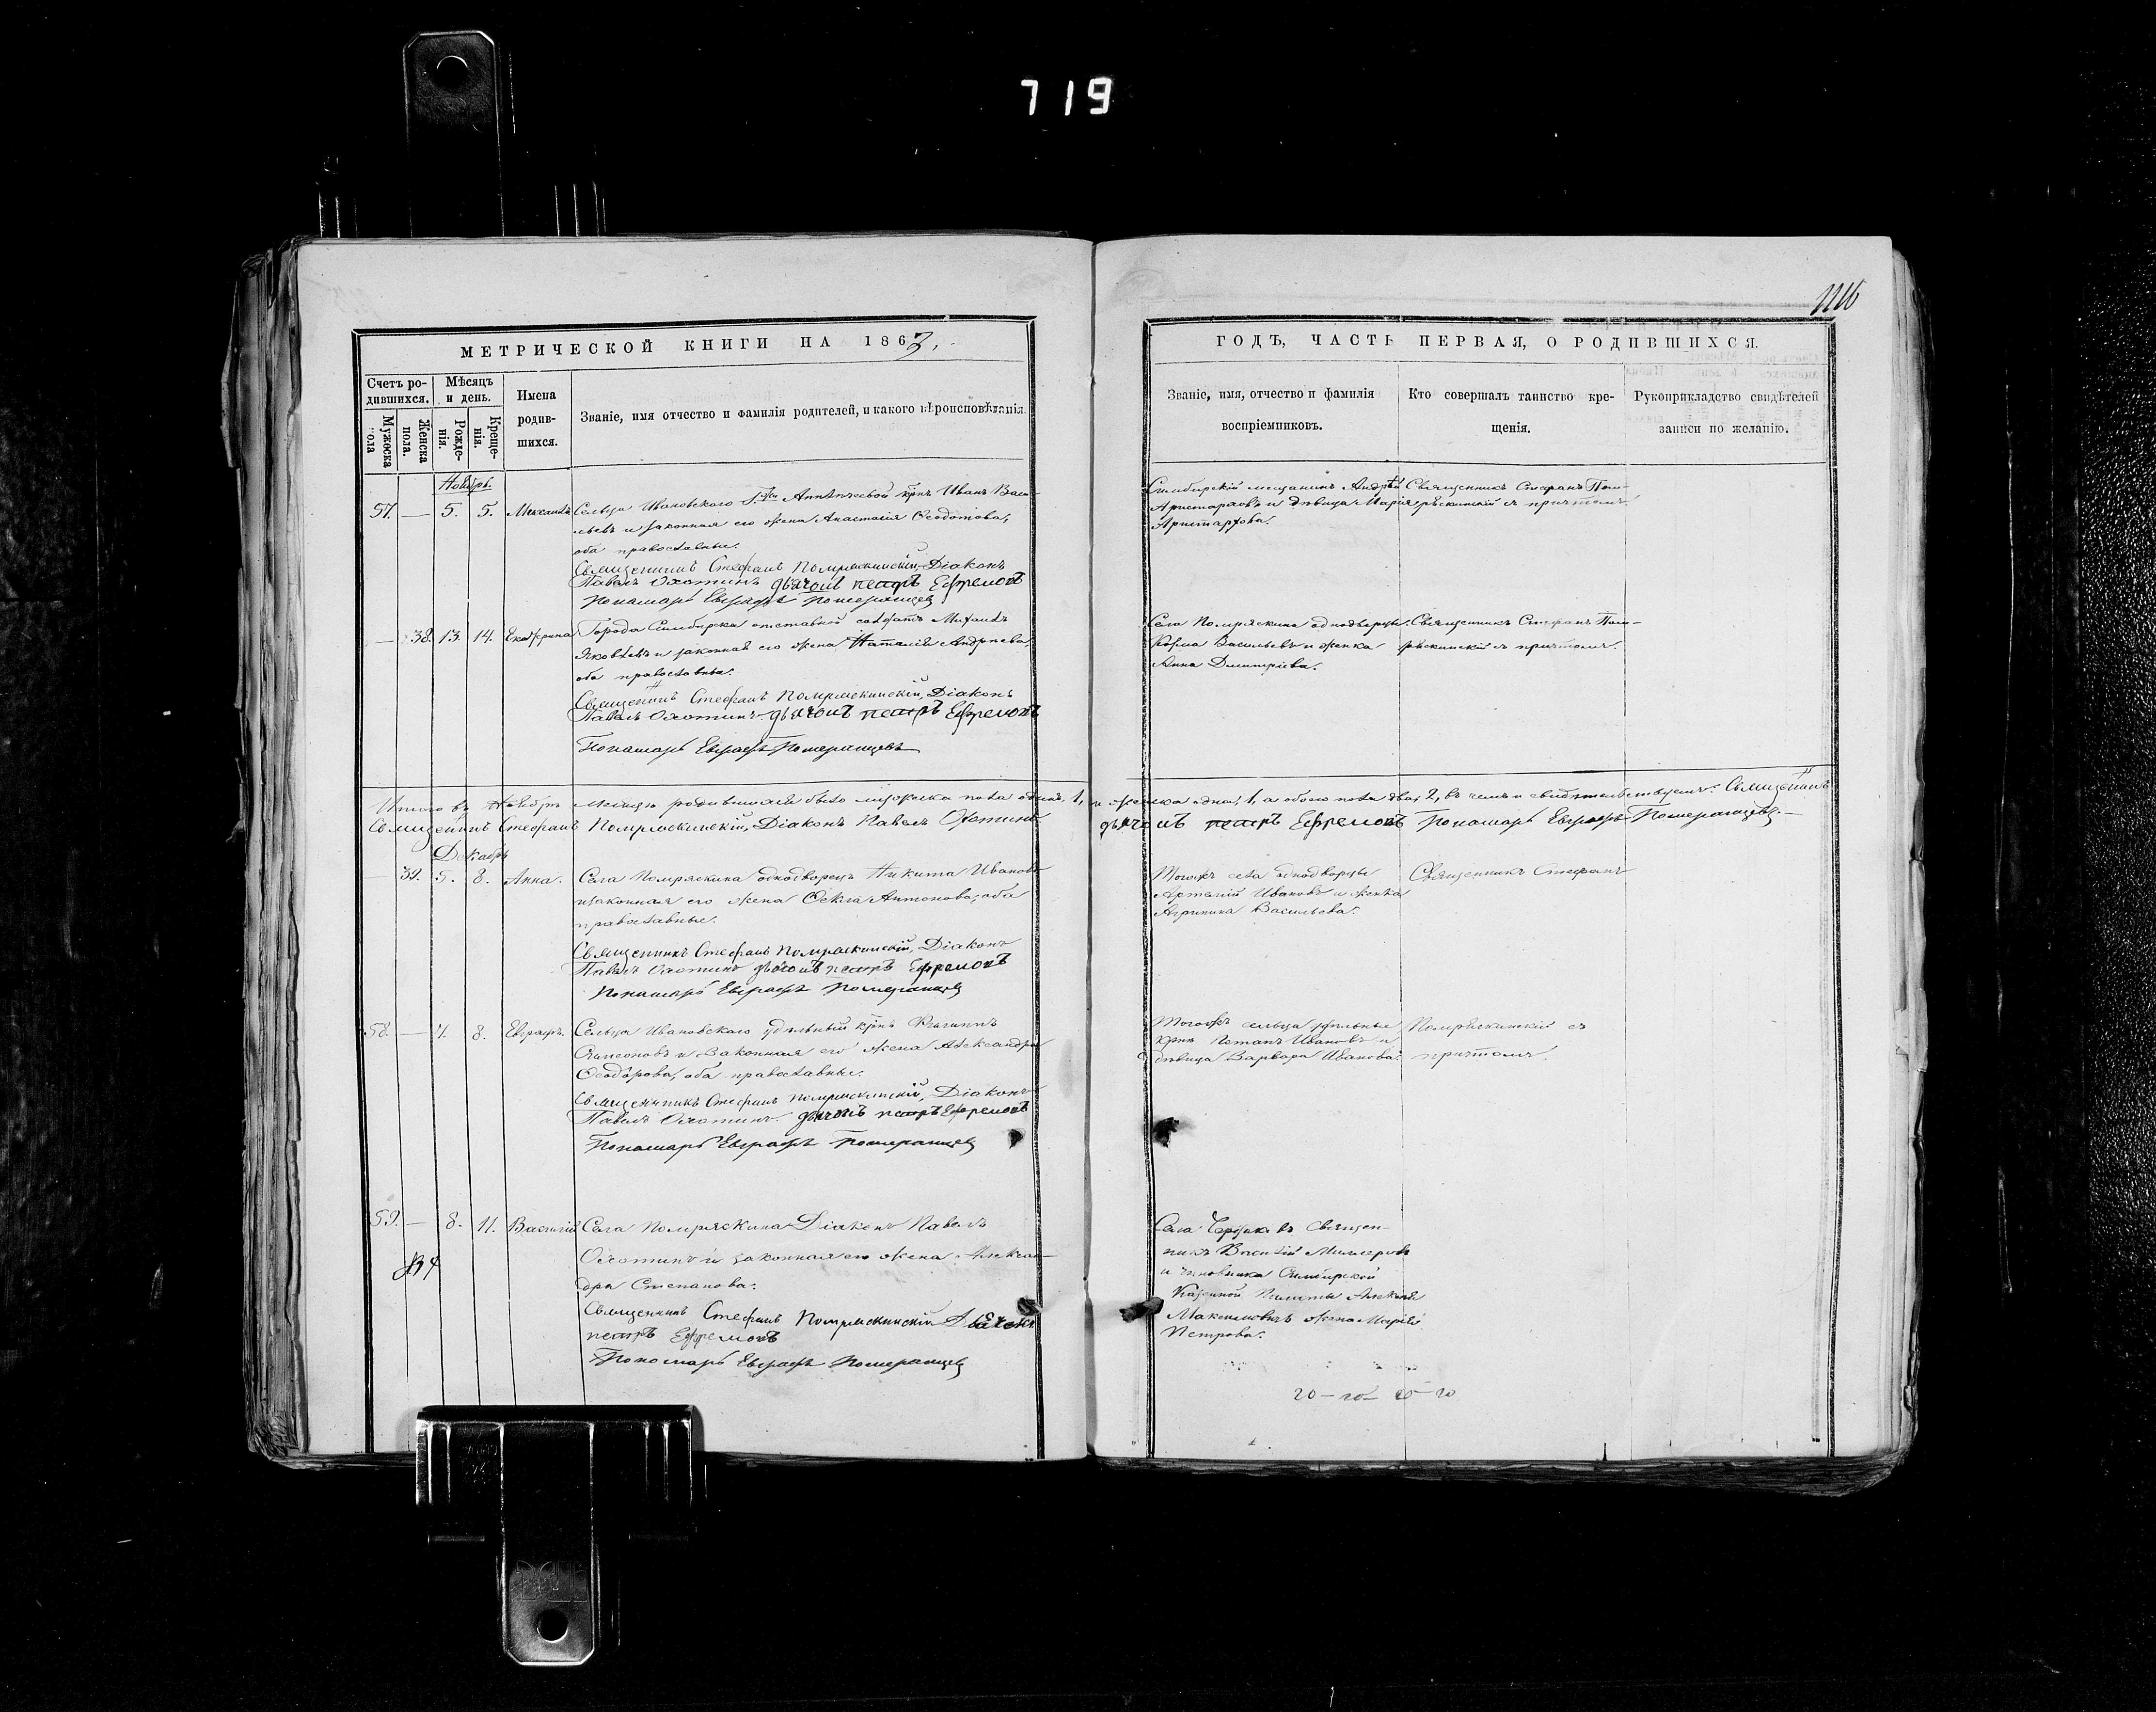 719
1116
МЕТРИЧЕСКОЙ КНИГИ НА 1862.
Счетъ ро-
дившихся.
Мѣсяцъ
и день.
Мужеска
пола
Женска
пола.
Рожде-
нія.
Креще-
нія.
Имена
родив-
шихся.
Званіе, имя отчество и фамилія родителей, и какого вѣроисповѣданія.
Ноябрь.
57. — 5. 5. Сельца Ивановскаго Иванъ Васи-
льевъ и законная его жена Анастасія Ѳеодотова,
оба православные.
Священникъ Стефанъ Помряскинскій, Діаконъ
Павелъ Охотинъ дьячокъ петръ Ефремовъ
Пономарь Евграфъ Померанцев
— 38. 13. 14. Екатерина Города Симбирска отставной солдатъ Михаилъ
Яковлевъ и законная его жена Наталія Андреева,
оба православные.
Священникъ Стефанъ Помряскинскій, Діаконъ
Павелъ Охотинъ дьячокъ петръ Ефремовъ
Пономарь Евграфъ Померанцевъ
Итого въ Ноябрѣ мѣсяцѣ родившихся было мужеска пола одинъ, 1,
Священникъ Стефанъ Помряскинскій, Діаконъ Павелъ Охотинъ
Декабрь
39. 5. 8. Анна. Села Помряскина однодворецъ Никита Ивановъ
и законная его жена Ѳекла Антонова, оба
православные.
Священникъ Стефанъ Помряскинскій, Діаконъ
Павелъ Охотинъ дьячокъ петръ Ефремовъ
Пономарь Евграфъ Померанцев
58. — 7. 8. Евграфъ. Сельца Ивановскаго удѣльный крнъ
Симеоновъ и законная его жена Александра
Ѳеодорова, оба православные.
Священникъ Стефанъ Помряскинскій, Діаконъ
Павелъ Охотинъ дьячокъ петръ Ефремовъ
Пономарь Евграфъ Померанцев
59. — 8. 11. Василій Села Помряскина Діаконъ Павелъ
Охотинъ и законная его жена Алексан-
дра Степанова.
Священникъ Стефанъ Помряскинскій Дьячекъ
петръ Ефремовъ
Пономарь Евграфъ Померанцев
ГОДЪ, ЧАСТЬ ПЕРВАЯ, О РОДИВШИХСЯ.
Званіе, имя, отчество и фамилія
воспріемниковъ.
Кто совершалъ таинство кре-
щенія.
Рукоприкладство свидѣтелей
записи по желанію.
Симбирскій мещанинъ Андрей
Аристарховъ и дѣвица Марія
Аристархова.
Священникъ Стефанъ Пом-
ряскинскій съ причтомъ.
Села Помряскина однодворецъ
Козма Васильевъ и женка
Анна Димитріева.
Священникъ Стефанъ Пом-
ряскинскій съ причтомъ.
и женска одна, 1, а обоего пола два, 2, въ чемъ и свидѣтельствуемъ. Священникъ
дьячокъ петръ Ефремовъ Пономарь Евграфъ Померанцевъ. —
Тогожъ села однодворецъ
Артемій Ивановъ и женка
Агрипина Васильева.
Священникъ Стефанъ
Тогожъ сельца удѣльные
крне Ивановъ и
дѣвица Варвара Иванова.
Помряскинскій съ
причтомъ.
Села Священ-
никъ Василій
и чиновника Симбирской
Казенной Палаты
Максимовичъ жена Марія
Петрова.
20 — 20 — 20 — 20